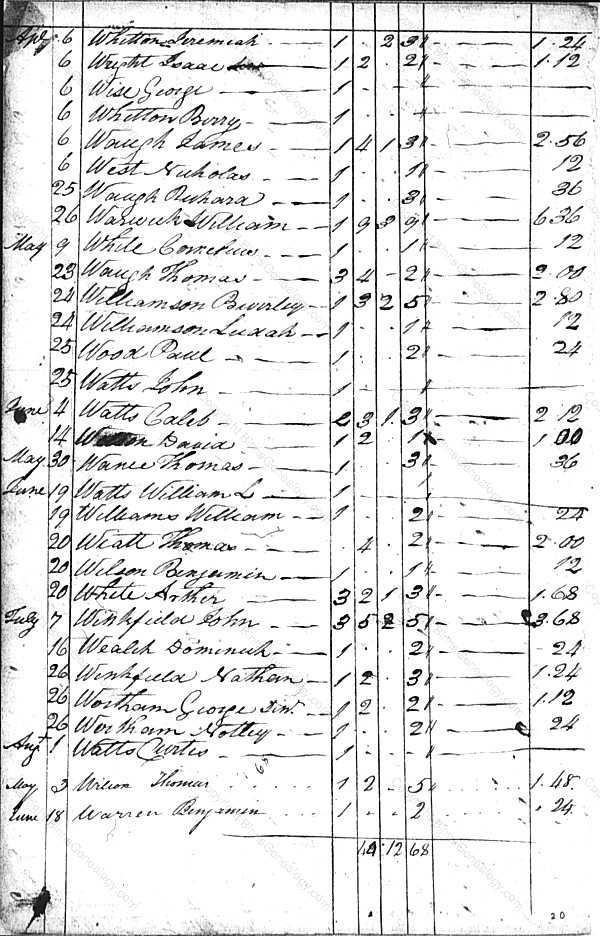 Apl 6 Whitton Jeremiah 1 . 2 3 " 1.24
6 Wright Isaac 1 2 . 2 " 1.12
6 Wise George 1 . . "
6 Whitton Berry 1 . . "
6 Waugh James 1 4 1 3 " 2.56
6 West Nicholas 1 . . 1 " 12
25 Waugh Richard 1 . . 3 " 36
26 Warwick William 1 9 3 9 " 6.36
May 9 White Cornelius 1 . . 1 " 12
23 Waugh Thomas 3 4 - 2 " 2.00
24 Williamson Beverley 1 3 2 5 " 2.80
24 Williamson Judah 1 . . 1 " 12
25 Wood Paul 1 . . 2 " 24
25 Watts John 1 "
June 4 Watts Caleb 2 3 1 3 " 2.12
14 David 1 2 . 1 "
May 30 Wance Thomas 1 . . 3 " 36
June 19 Watts William L 1 "
19 Williams William 1 . . 2 " 24
20 Wiatt Thomas . 4 . 2 " 2.00
20 Wilson Benjamin 1 . . 1 " 12
20 White Arther 3 2 1 3 " 1.68
July 7 Winkfield John 3 5 2 5 " 3.68
16 Wealch Dominick 1 . . 2 " 24
26 Winkfield Nathan 1 2 . 3 " 1.24
26 Wortham George Sinr. 1 2 . 2 " 1.12
26 Wortham Notley 1 . . 2 " 24
Augt 1 Watts Curtis 1 . . "
May 3 Wilson Thomas 1 2 . 5 " 1.48
June 18 Warren Benjamin 1 . . 2 .24
12 68
20